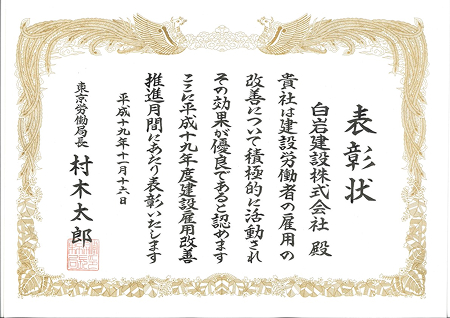 表彰状
白岩建設株式会社 殿
貴社は建設労働者の雇用の
改善について積極的に活動され
その効果が優良であると認めます
ここに平成十九年度建設雇用改善
推進月間にあたり表彰いたします
平成十九年十一月十六日
東京労働局長 村木太郎